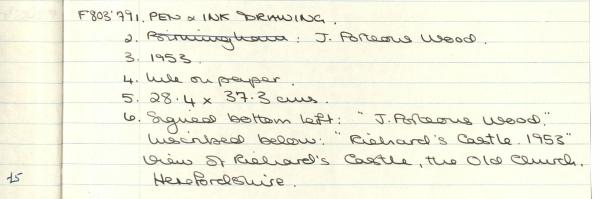 F803'791. PEN & INK DRAWING.
2. Birmingham: J. Porteous Wood.
3. 1953.
4. Ink on paper.
5. 28.4 x 37.3 cms.
6. Signed bottom left: "J. Porteous Wood."
Inscribed below: "Richard's Castle. 1953"
View of Richard's Castle, the Old Church,
Herefordshire.
15